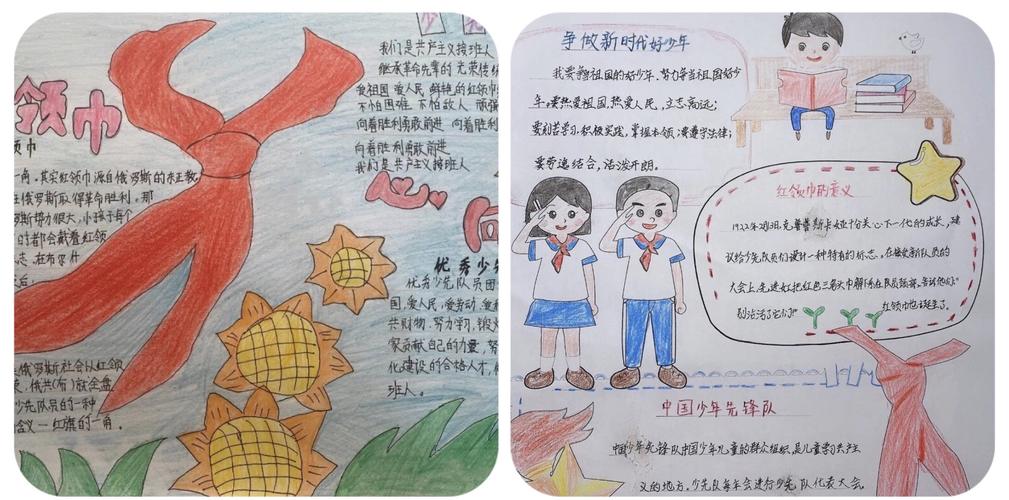 少先
领巾
领巾
一角。其实红领巾源自俄罗斯的东正教,
俄罗斯取得革命胜利,那
罗斯势力很大,小孩子每个
时都会戴叠红领
志,在布尔什
后,
俄罗斯社会从红领
俄共(布)就会盘
少先队员的一种
含义一红旗的一角。
我们是共产主义接班人
继承革命先辈的光荣传统
爱祖国,爱人民,鲜艳的红领巾
不怕困难,不怕敌人,顽强
向着胜利勇敢前进 向着胜利
向着胜利勇敢前进
我们是共产主义接班人
心
向
优秀少
优秀少先队员团
国,爱人民,爱劳动,
共财物,努力学习,锻
家贡献自己的力量,努
化建设的合格人才,
班人。
争做新时代好少年
我要争当祖国的好少年,努力争当祖国好少
年。要热爱祖国,热爱人民,立志高远;
要刻苦学习,积极实践,掌握本领,要遵守法律;
要劳逸结合,活泼开朗。
红领巾的意义
1922年 克鲁普斯卡娅十分关心下一代的成长,建
议给少先队员们设计一种特有的标志。在接受新队员的
大会上,先进女工把红色三角头巾解下系在队员脖子。告诉他们:“
别沾污了它们!” 红领巾也诞生了。
中国少年先锋队
中国少年先锋队中国少年儿童的群众组织,是儿童学习共产主
义的地方。少先队每年会进行少先队代表大会,